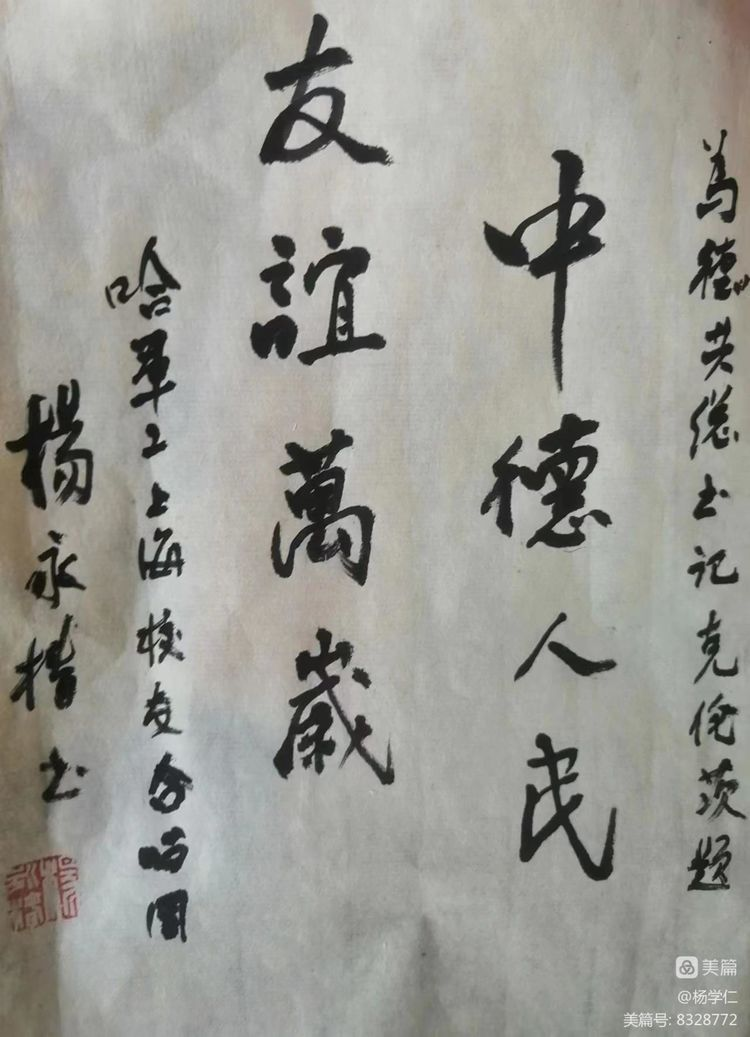 為德共總书记克伦茨題
中德人民
友誼萬歲
哈軍工上海校友合唱团
楊永书
美篇
@杨学仁
美篇号: 8328772